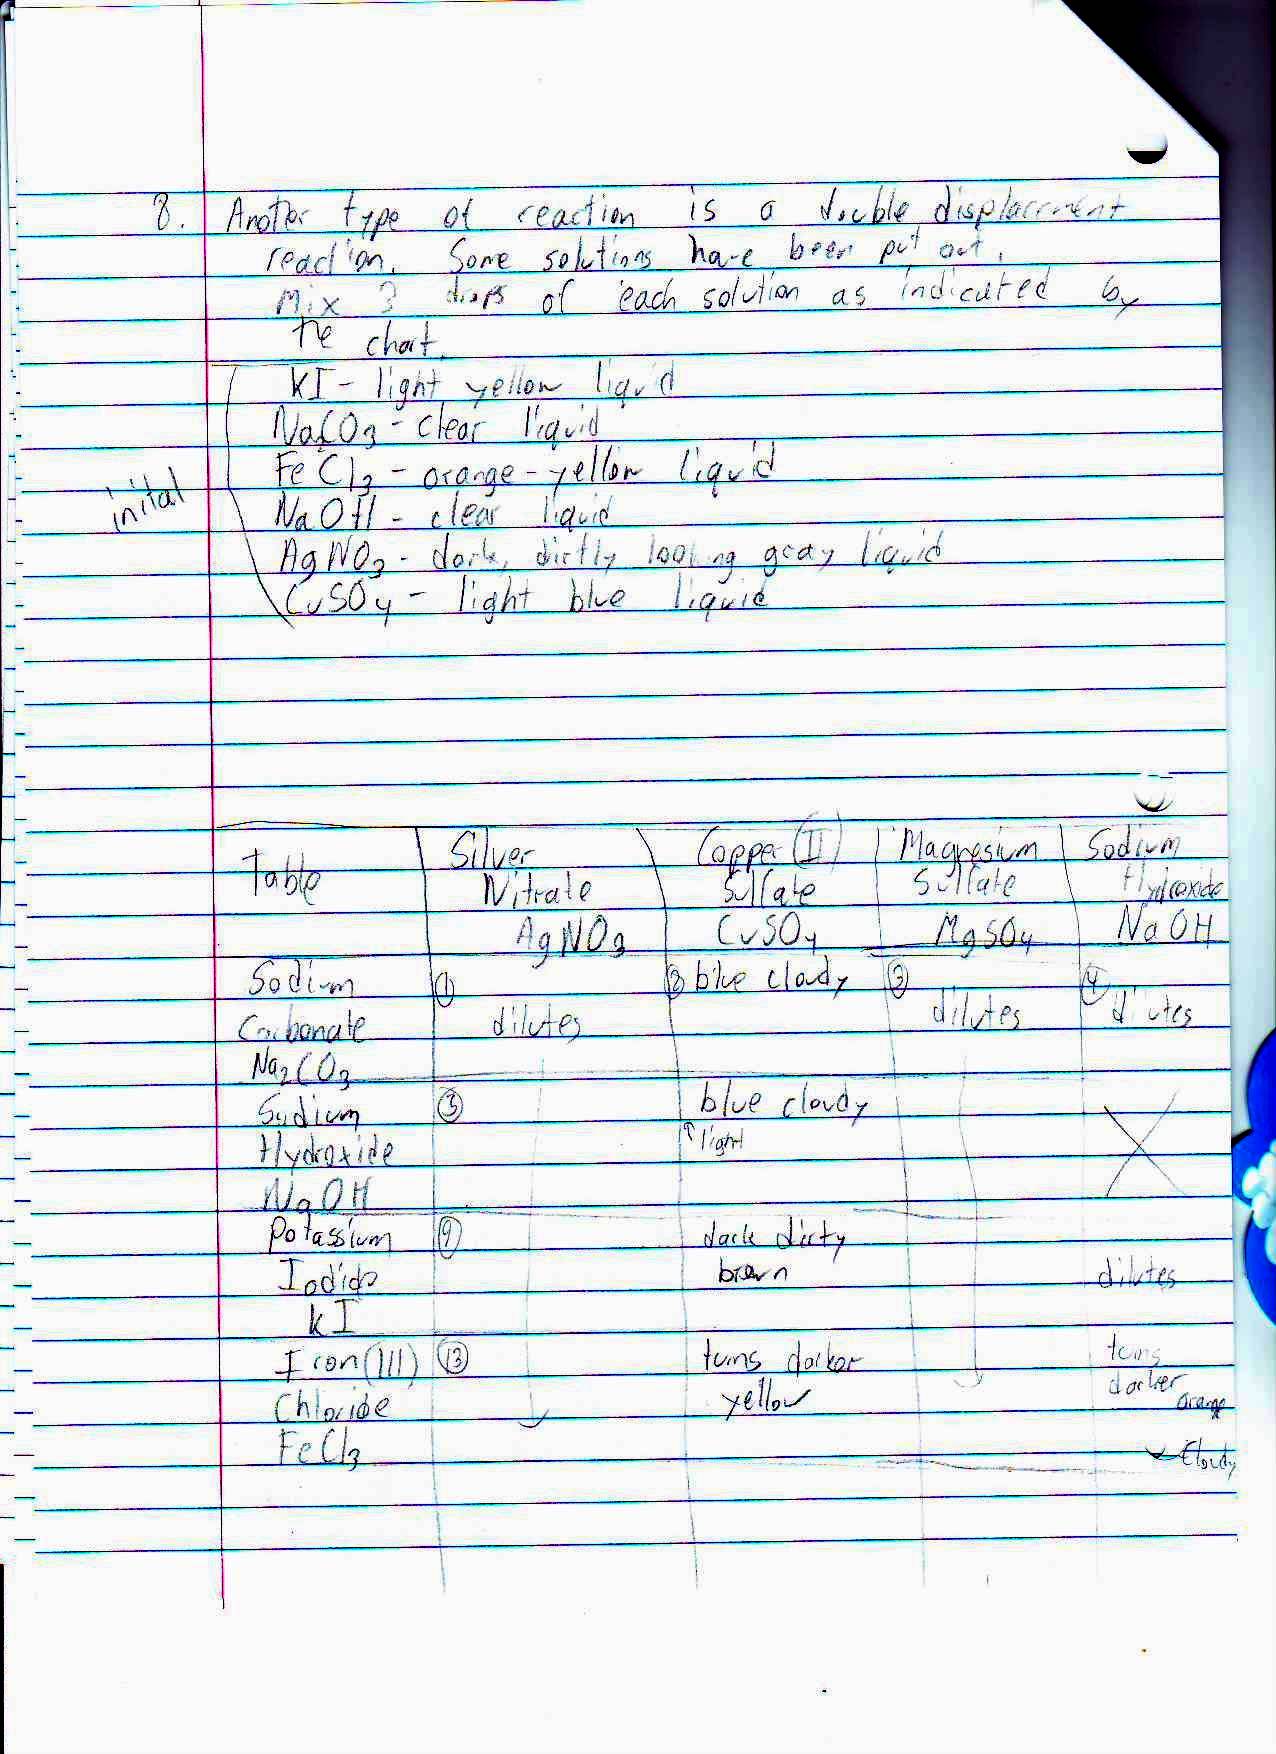 8. Another type of reaction is a double displacement
reaction. Some solutions have been put out.
Mix 3 drops of each solution as indicated by
the chart.
KI - light yellow liquid
NaCO3 - clear liquid
FeCl3 - orange-yellow liquid
NaOH - clear liquid
inital
AgNO3 - dark, dirtly looking gray liquid
CuSO4 - light blue liquid
Table Silver Nitrate AgNO3 Copper (II) Sulfate CuSO4 Magnesium Sulfate MgSO4 Sodium Hydroxide NaOH
Sodium ① ② blue cloudy ③ ④
Carbonate dilutes dilutes dilutes
Na2CO3
Sodium ⑤ blue cloudy
Hydroxide ↑light
NaOH
Potassium ⑨ dark dirty
Iodide brown dilutes
KI
Iron(III) ⑬ turns darker turns
Chloride yellow darker orange
FeCl3 cloudy